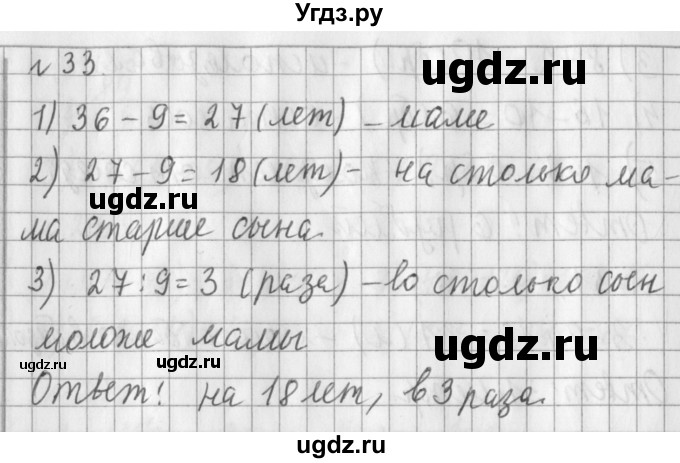 Угдз.ру
№ 33.
ugdz.ru
1) 36 – 9 = 27 (лет) – маме
2) 27 – 9 = 18 (лет) – на столько ма-
ugdz.ru
ма старше сына.
3) 27 : 9 = 3 (раза) – во столько сын
моложе мамы
ugdz.ru
ugdz.ru
ugdz.ru
Ответ: на 18 лет, в 3 раза.
ugdz.ru